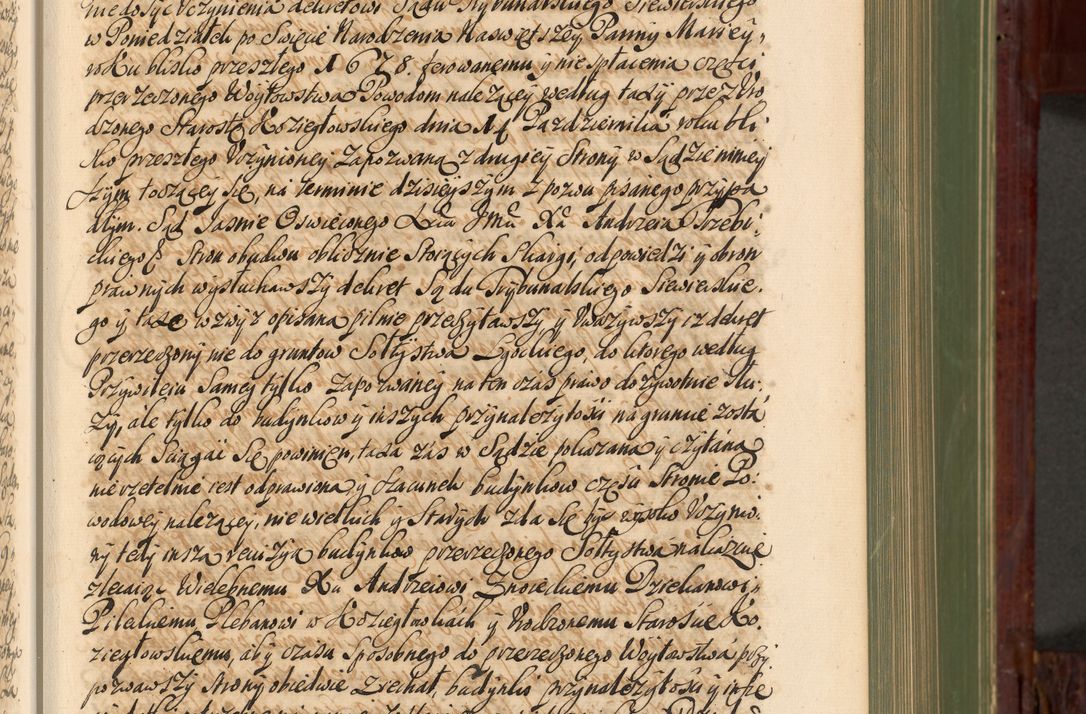 niedosyć Uczynienia dekretowi Sądu Trybunalskiego Siewierskiego
w Poniedziałek po Swięcie Narodzenia Naswiętszey Panny Mariey,
roku blisko przeszłego 1678. ferowanemu y nie spłacenia części
przerzeczonego Woytowstwa Powodom należącey według taxy przez Uro
dzonego Starostę Koziegłowskiego dnia 14 Pazdziernika roku bli
sko przeszłego Uczynioney Zapozwaną z drugiey Strony w Sądzie ninieÿ
szym toczącey się, na terminie dzisieyszym z pozwu pisanego przypa
dłym. Sąd Jasnie Oswieconego Xcia Jmci Xa Andrzeia Trzebi
ckiego Stron obudwu oblicznie Stoiących Skargi, odpowiedzi y obron
prawnych wysłuchawszy dekret Sądu Trybunalskiego Siewierskie
go y taxę wzwyż opisaną pilnie przeczytawszy y Uważywszy iż dekret
przerzeczony nie do gruntow Sołtystwa do ktorego według
Przywileiu Samey tylko Zapozwaney na ten czas prawo dożywotnie słu
ży, ale tylko do budynkow y inszych przynależytości na gruncie zosta
iących Sciągać się powinien, taxa zaś w Sądzie pokazana y czytana
nierzetelnie iest odprawiona, y szacunek budynkow części Stronie Po
wodowey należącey, niewielkich y Starych zda się być wysoko Uczynio
ny tedy insza rewizya budynkow przerzeczonego Sołtystwa nakazuie
zlecaiąc Wielebnemu Xu Andrzeiowi Dziekanowi
Pileckiemu Plebanowi w Koziegłowkach y Urodzonemu Staroście Ko
ziegłowskiemu, aby czasu Sposobnego do przerzeczonego Woytowstwa przy
pozwawszy strony obiedwie Zjechał, budynki przynależytości y insze